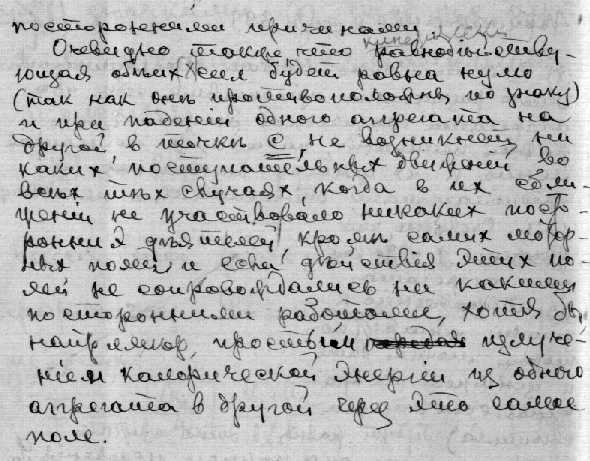 посторонними причинами
Очевидно также что равнодѣйству-
ющая обѣихъ силъ будетъ равна нулю
(так как онѣ противоположны по знаку)
и при паденіи одного аггрегата на
другой в точкѣ С не возникнет ни
каких поступательных движеній во
всѣх тѣх случаях, когда в их сбли-
женіи не участвовало никаких посто-
ронних дѣятелей, кромѣ самих
полей и если дѣйствія этих по-
лей не сопровождались ни какими
посторонними работами, хотя бы,
напримѣр, простым передач излуче-
ніем калорической энергіи из одного
аггрегата в другой через это самое
поле.